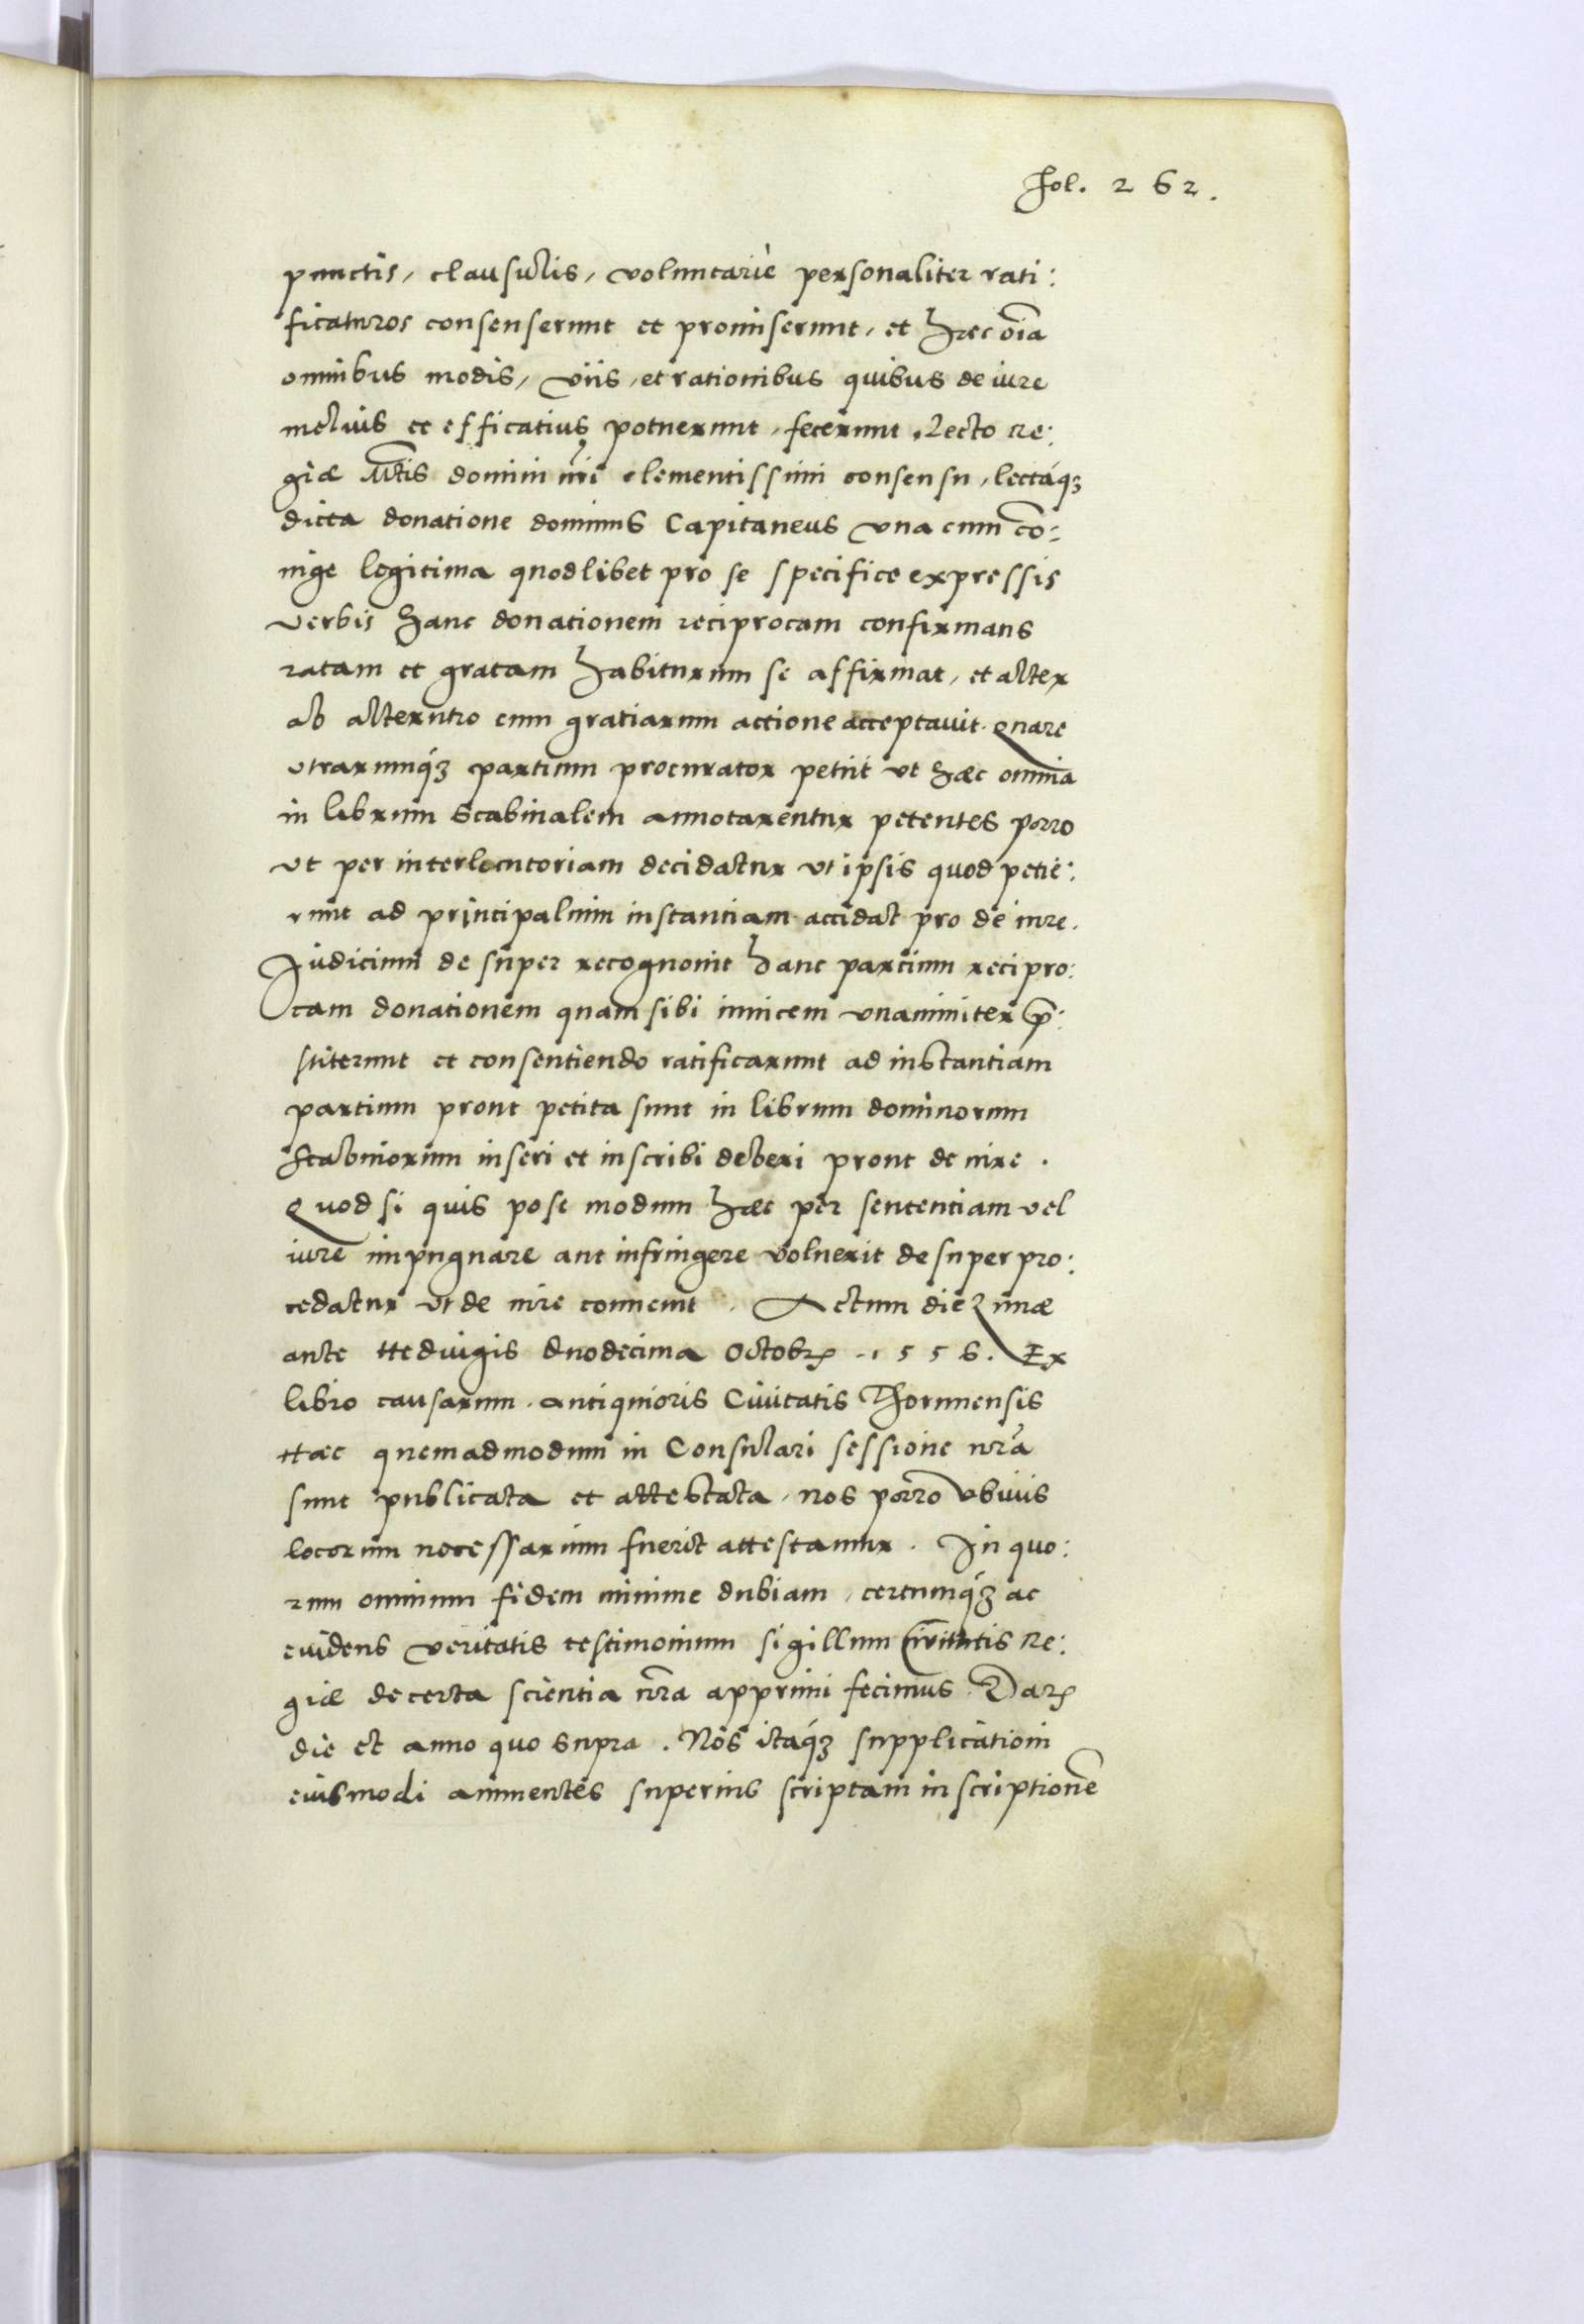 Fol. 262.
punctis, clausulis, voluntarie personaliter rati:
ficaturos consenserunt et promiserunt, et hæc oīa
omnibus modis, viis, et rationibus quibus de iure
melius et efficatius potuerunt, fecerunt. Lecto Re:
giæ Mtis domini nri clementissimi consensu, lectaq3
dicta donatione dominus Capitaneus vna cum co:
niuge legitima quodlibet pro se specifice expressis
verbis hanc donationem reciprocam confirmans
ratam et gratam habiturum se affirmat, et alter
ab alterutro cum gratiarum actione acceptavit. Quare
vtrarumq3 partium procurator petiit vt hæc omnia
in librum Scabinalem annotarentur petentes porro
vt per interlocutoriam decidatur vt ipsis quod petie:
runt ad principalium instantiam accidat pro de iure.
Iudicium de super recognouit hanc partium recipro:
cam donationem quam sibi inuicem vnanimiter p̄:
stiterunt et consentiendo ratificarunt ad instantiam
partium prout petita sunt in librum dominorum
scabinorum inseri et inscribi deberi prout de iure.
Quod si quis post modum hæc per sententiam vel
iure impugnare aut infringere voluerit de super pro:
cedatur vt de iure conuenit. Actum die Lunæ
ante Heduigis duodecima Octobr. 1556. Ex
libro causarum antiquioris Ciuitatis Thorunensis
Hæc quemadmodum in Consulari sessione nra
sunt publicata et attestata, nos porro vbiuis
locorum necessarium fuerit attestamur. In quo:
rum omnium fidem minime dubiam, certumq3 ac
euidens veritatis testimonium sigillum ciuitatis Re:
giæ de certa scientia nra apprimi fecimus. Dat.
die et anno quo supra. Nos itaq3 supplicationi
eiusmodi annuentes superius scriptam inscriptionē